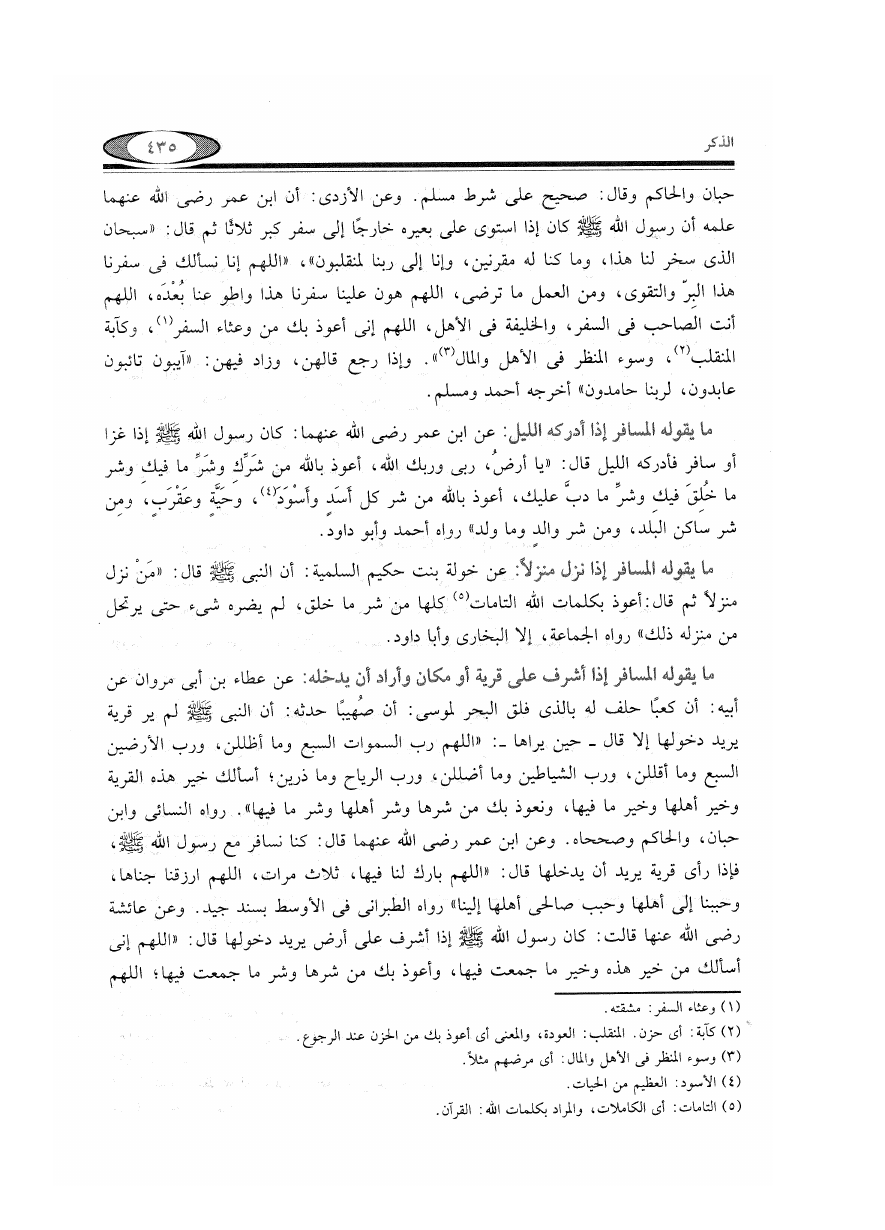 الذكر
٤٣٥
حبان والحاكم وقال: صحيح على شرط مسلم. وعن الأزدى: أن ابن عمر رضى الله عنهما
علمه أن رسول الله ﷺ كان إذا استوى على بعيره خارجًا إلى سفر كبر ثلاثًا ثم قال: «سبحان
الذى سخر لنا هذا، وما كنا له مقرنين، وإنا إلى ربنا لمنقلبون»، «اللهم إنا نسألك فى سفرنا
هذا البِرّ والتقوى، ومن العمل ما ترضى، اللهم هون علينا سفرنا هذا واطو عنا بُعْدَه، اللهم
أنت الصاحب فى السفر، والخليفة فى الأهل، اللهم إنى أعوذ بك من وعثاء السفر(١)، وكآبة
المنقلب(٢)، وسوء المنظر فى الأهل والمال(٣)». وإذا رجع قالهن، وزاد فيهن: «آيبون تائبون
عابدون، لربنا حامدون» أخرجه أحمد ومسلم.
ما يقوله المسافر إذا أدركه الليل: عن ابن عمر رضى الله عنهما: كان رسول الله ﷺ إذا غزا
أو سافر فأدركه الليل قال: «يا أرضُ، ربى وربك الله، أعوذ بالله من شَرِّكِ وشَرِّ ما فيكِ وشر
ما خُلِقَ فيكِ وشرِّ ما دبَّ عليك، أعوذ بالله من شر كل أَسَدٍ وأَسْوَدَ(٤)، وحَيَّةٍ وعَقْرَبٍ، ومِن
شر ساكن البلد، ومن شر والدٍ وما ولد» رواه أحمد وأبو داود.
ما يقوله المسافر إذا نزل منزلاً: عن خولة بنت حكيم السلمية: أن النبى ﷺ قال: «مَنْ نزل
منزلاً ثم قال:أعوذ بكلمات الله التامات(٥) كلها من شر ما خلق، لم يضره شىء حتى يرتحل
من منزله ذلك» رواه الجماعة، إلا البخارى وأبا داود.
ما يقوله المسافر إذا أشرف على قرية أو مكان وأراد أن يدخله: عن عطاء بن أبى مروان عن
أبيه: أن كعبًا حلف له بالذى فلق البحر لموسى: أن صُهيبًا حدثه: أن النبى ﷺ لم ير قرية
يريد دخولها إلا قال ـ حين يراها ـ: «اللهم رب السموات السبع وما أظللن، ورب الأرضين
السبع وما أقللن، ورب الشياطين وما أضللن، ورب الرياح وما ذرين؛ أسألك خير هذه القرية
وخير أهلها وخير ما فيها، ونعوذ بك من شرها وشر أهلها وشر ما فيها». رواه النسائى وابن
حبان، والحاكم وصححاه. وعن ابن عمر رضى الله عنهما قال: كنا نسافر مع رسول الله ﷺ،
فإذا رأى قرية يريد أن يدخلها قال: «اللهم بارك لنا فيها، ثلاث مرات، اللهم ارزقنا جناها،
وحببنا إلى أهلها وحبب صالحى أهلها إلينا» رواه الطبرانى فى الأوسط بسند جيد. وعن عائشة
رضى الله عنها قالت: كان رسول الله ﷺ إذا أشرف على أرض يريد دخولها قال: «اللهم إنى
أسألك من خير هذه وخير ما جمعت فيها، وأعوذ بك من شرها وشر ما جمعت فيها؛ اللهم
(١) وعثاء السفر: مشقته.
(٢) كآبة: أى حزن. المنقلب: العودة، والمعنى أى أعوذ بك من الحزن عند الرجوع.
(٣) وسوء المنظر فى الأهل والمال: أى مرضهم مثلاً.
(٤) الأسود: العظيم من الحيات.
(٥) التامات: أى الكاملات، والمراد بكلمات الله: القرآن.